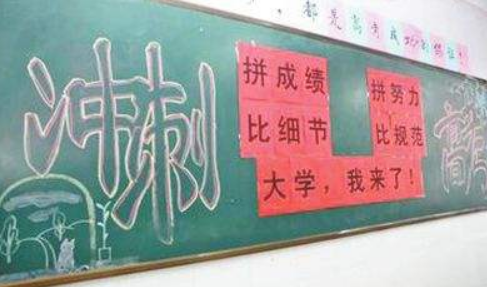 都是高考成功的
冲刺
拼成绩
比细节
拼努力
比规范
大学，我来了！
高考